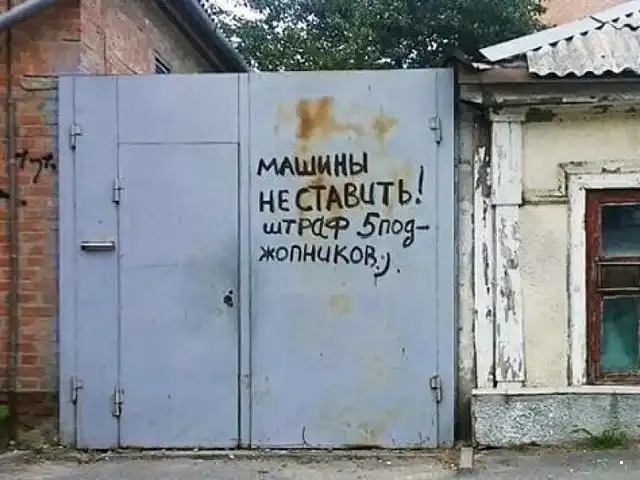 тут
МАШИНЫ
НЕ СТАВИТЬ!
ШТРАФ 5 ПОД-
ЖОПНИКОВ:).